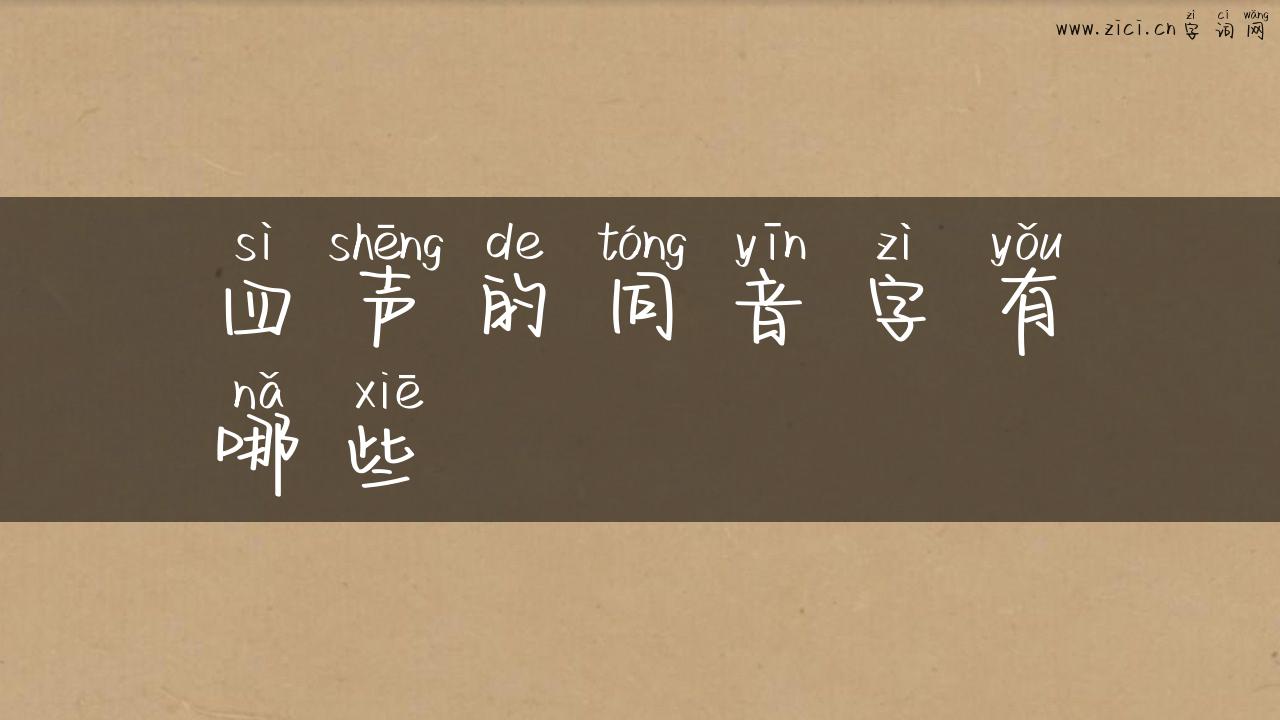 zì cí wǎng
www.zici.cn 字 词 网
sì shēng de tóng yīn zì yǒu
四 声 的 同 音 字 有
nǎ xiē
哪 些